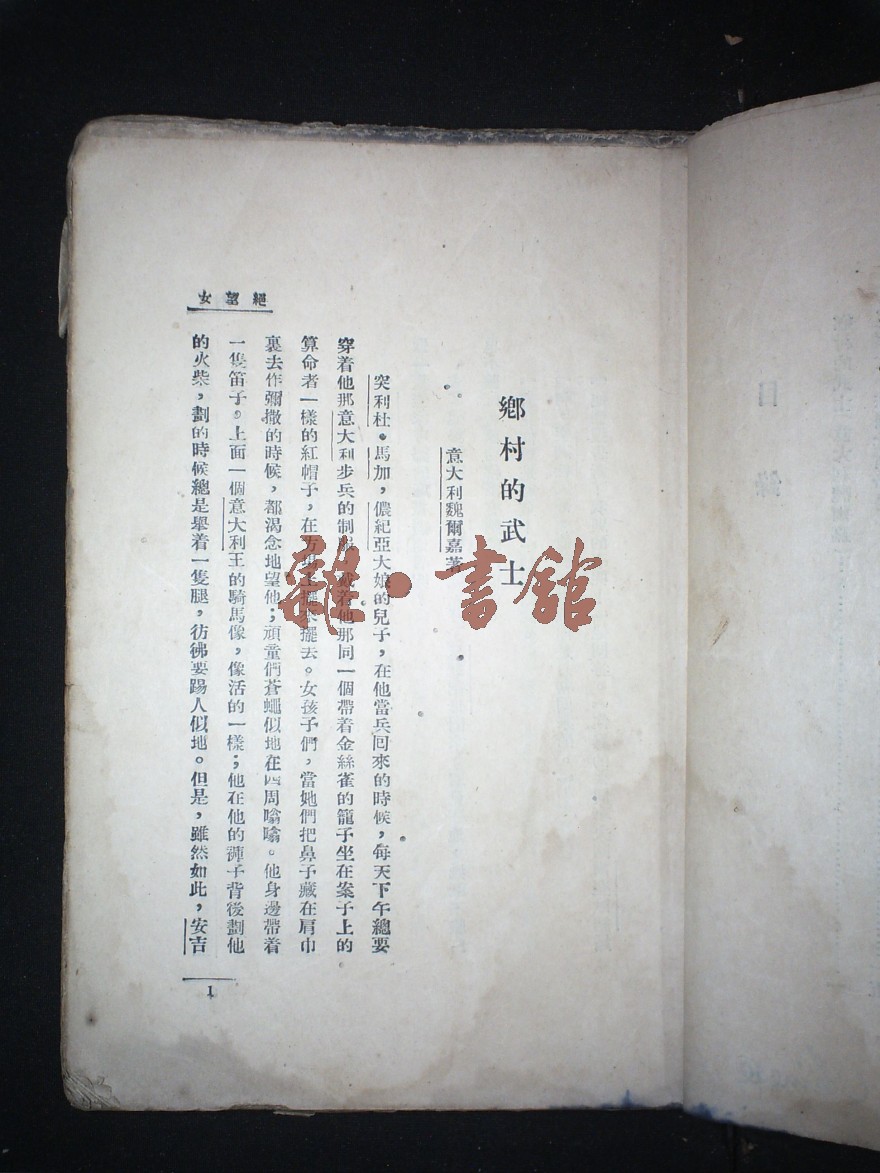 絕望女
鄉村的武士
意大利魏爾嘉著
突利杜·馬加，儂紀亞大娘的兒子，在他當兵回來的時候，每天下午總要
穿着他那意大利步兵的制 着他那同一個帶着金絲雀的籠子坐在案子上的
算命者一樣的紅帽子，在 擺去。女孩子們，當她們把鼻子藏在肩巾
裏去作彌撒的時候，都渴念地望他；頑童們蒼蠅似地在四周嗡嗡。他身邊帶着
一隻笛子。上面一個意大利王的騎馬像，像活的一樣；他在他的褲子背後劃他
的火柴，劃的時候總是舉着一隻腿，彷彿要踢人似地。但是，雖然如此，安吉
1
目錄
雜·書館